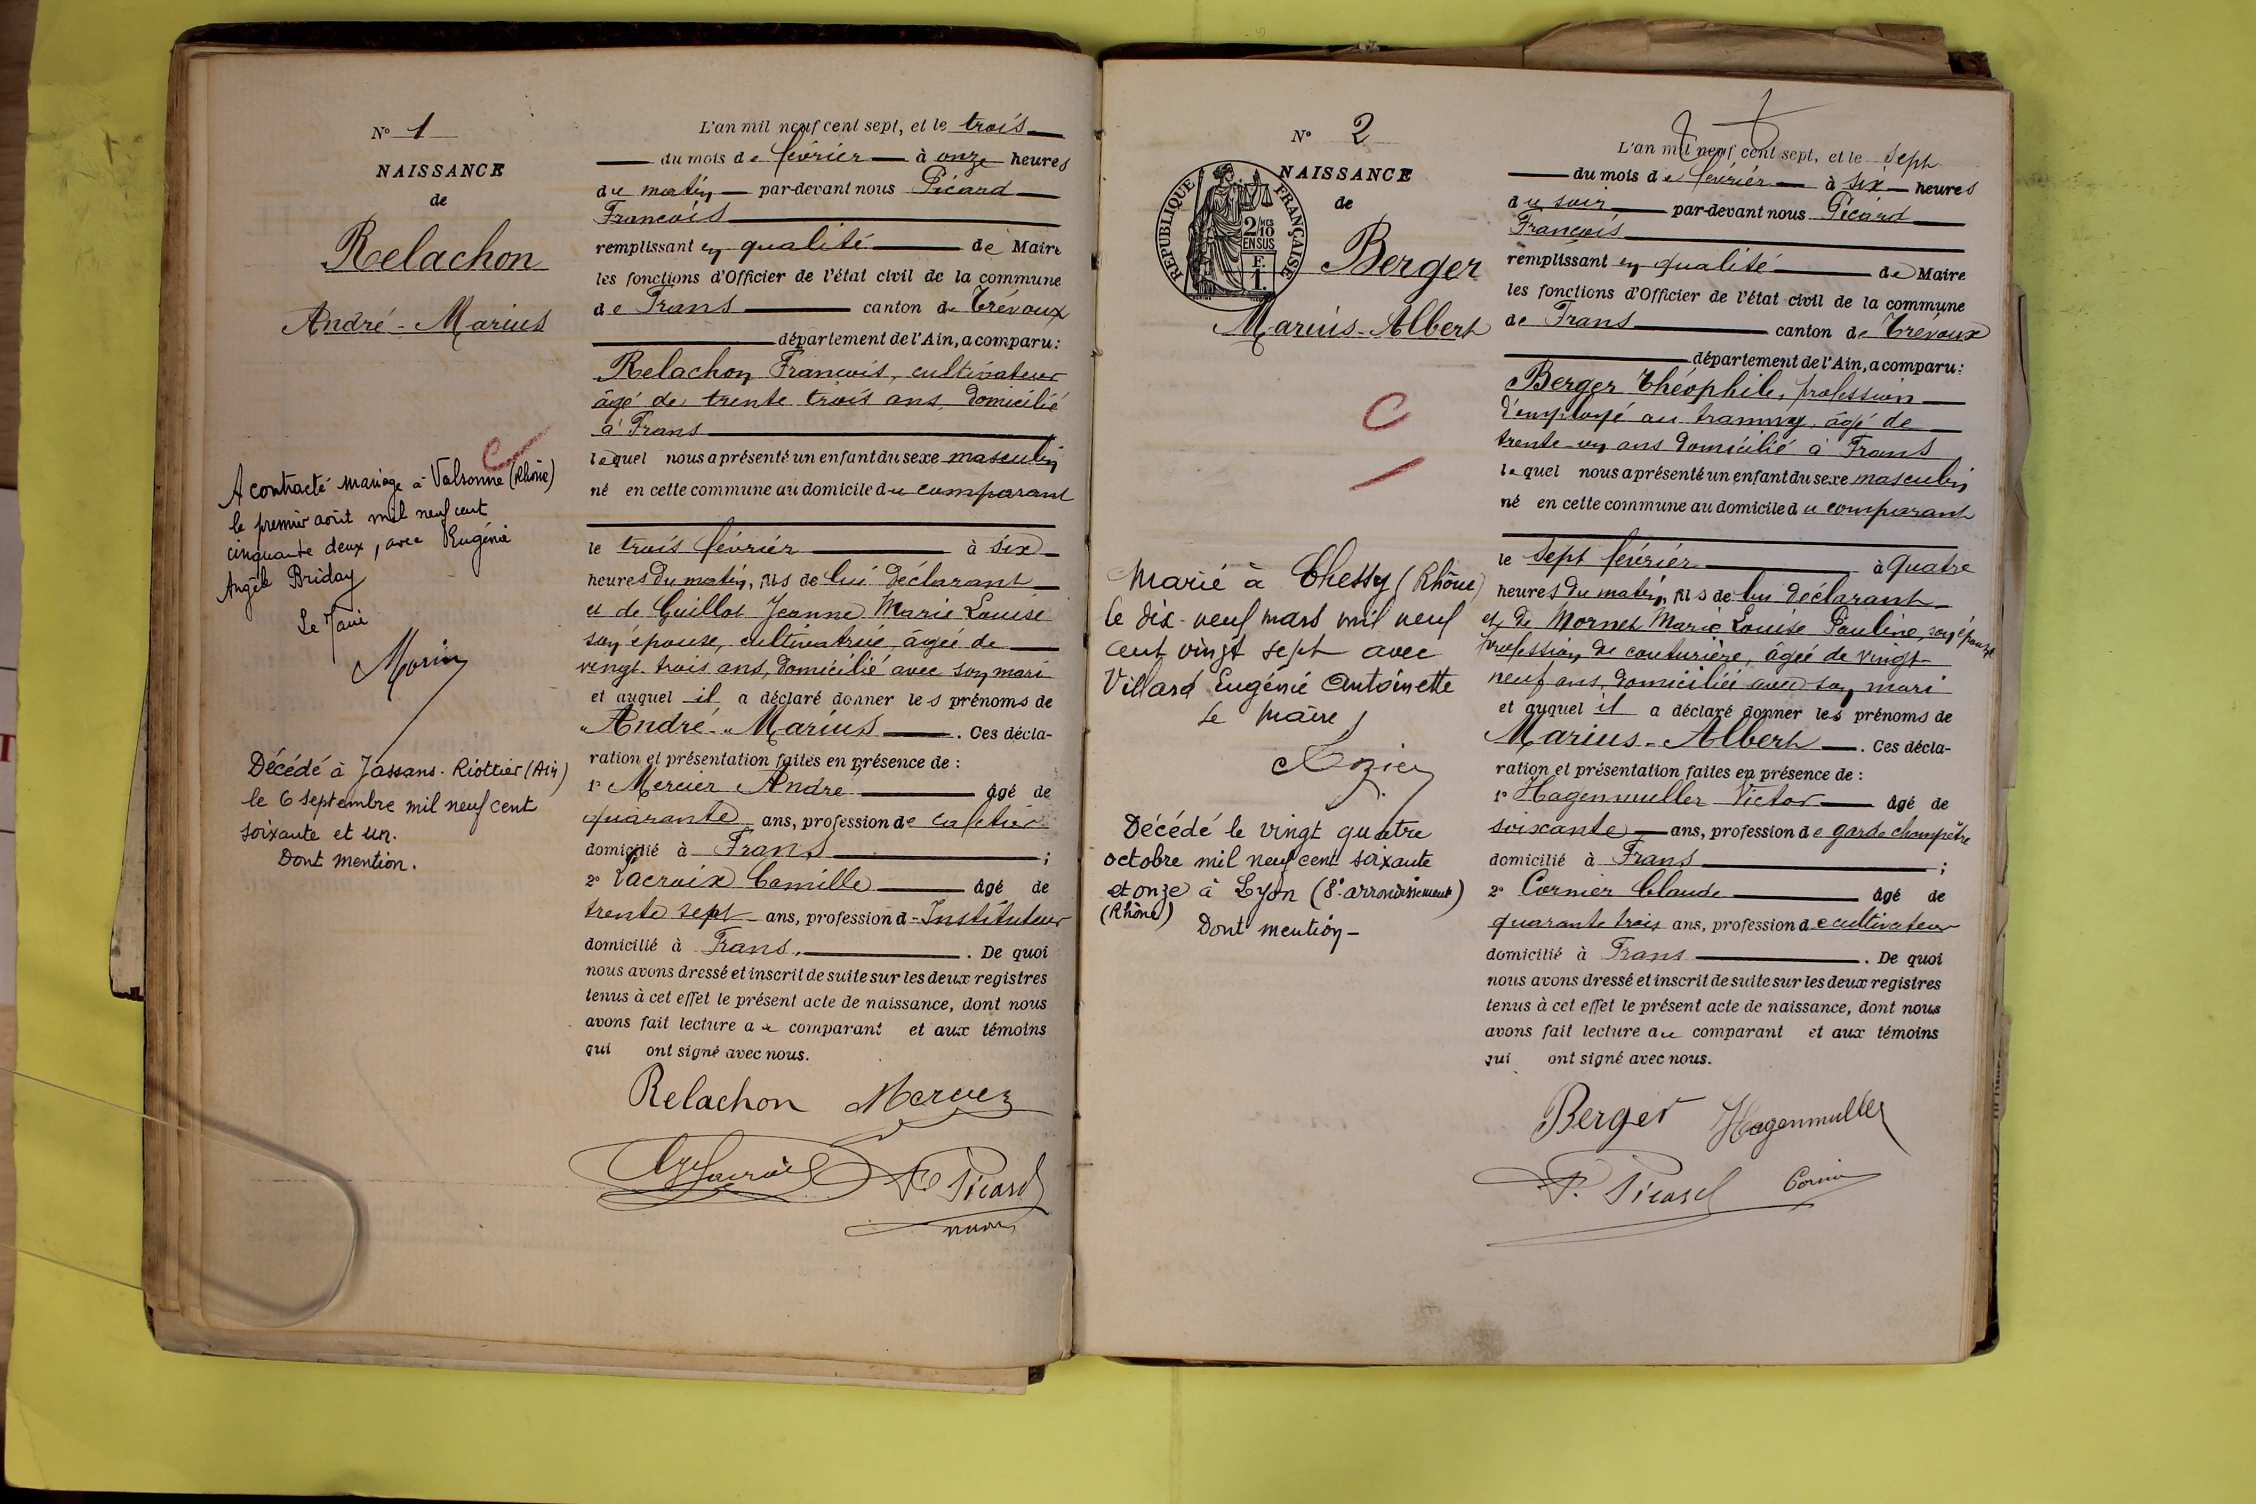 N° 1
NAISSANCE
de
Relachon
André - Marius
A contracté mariage à Valsonne (Rhône)
le premier août mil neuf cent
cinquante deux, avec Eugénie
Angèle Briday
Le Maire
Morin
Décédé à Jassans-Riottier (Ain)
le 6 septembre mil neuf cent
soixante et un.
Dont mention.
L'an mil neuf cent sept, et le trois
du mois de février à onze heures
du matin par-devant nous Picard
François
remplissant en qualité de Maire
les fonctions d'Officier de l'état civil de la commune
de Frans canton de Trévoux
département de l'Ain, a comparu:
Relachon François, cultivateur
âgé de trente trois ans, domicilié
à Frans
lequel nous a présenté un enfant du sexe masculin
né en cette commune au domicile du comparant
le trois février à six
heures du matin, fils de lui déclarant
et de Guillot Jeanne Marie Louise
son épouse, cultivatrice, âgée de
vingt trois ans, domicilié avec son mari
et auquel il a déclaré donner les prénoms de
"André - Marius . Ces décla-
ration et présentation faites en présence de :
1° Mercier André âgé de
quarante ans, profession de cafetier
domicilié à Frans ;
2° Lacroix Camille âgé de
trente sept ans, profession d'Instituteur
domicilié à Frans. . De quoi
nous avons dressé et inscrit de suite sur les deux registres
tenus à cet effet le présent acte de naissance, dont nous
avons fait lecture au comparant et aux témoins
qui ont signé avec nous.
Relachon Mercier
Lacroix F Picard
N° 2
NAISSANCE
de
RÉPUBLIQUE FRANÇAISE
2/10
EN SUS
F.
1.
Berger
Marius-Albert
C
Marié à Chessy (Rhône)
le dix-neuf mars mil neuf
cent vingt sept avec
Villard Eugénie Antoinette
Le Maire
Décédé le vingt quatre
octobre mil neuf cent soixante
et onze à Lyon (8e arrondissement)
(Rhône)
Dont mention -
L'an mil neuf cent sept, et le sept
du mois de février à six heures
du soir par-devant nous Picard
François
remplissant en qualité de Maire
les fonctions d'Officier de l'état civil de la commune
de Frans canton de Trévoux
département de l'Ain, a comparu:
Berger Théophile, profession
d'employé au tramway, âgé de
trente-un ans domicilié à Frans
lequel nous a présenté un enfant du sexe masculin
né en cette commune au domicile du comparant
le sept février à quatre
heures du matin, fils de lui déclarant
et de Mornet Marie Louise Pauline, son épouse
profession de couturière, âgée de vingt-
neuf ans, domiciliée avec son mari
et auquel il a déclaré donner les prénoms de
Marius-Albert . Ces décla-
ration et présentation faites en présence de :
1° Hagenmuller Victor âgé de
soixante ans, profession de garde champêtre
domicilié à Frans ;
2° Cornier Claude âgé de
quarante trois ans, profession de cultivateur
domicilié à Frans . De quoi
nous avons dressé et inscrit de suite sur les deux registres
tenus à cet effet le présent acte de naissance, dont nous
avons fait lecture au comparant et aux témoins
qui ont signé avec nous.
Berger Hagenmuller
F. Picard Cornier